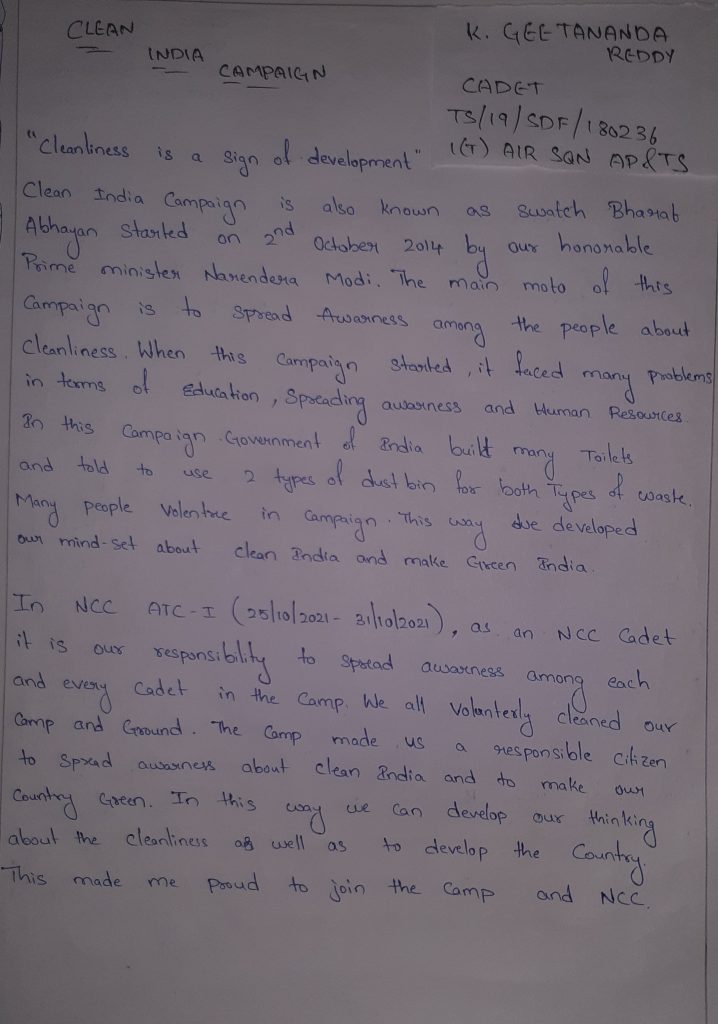 CLEAN
INDIA
CAMPAIGN
K. GEETANANDA
REDDY
CADET
TS/19/SDF/180236
1(T) AIR SQN AP&TS
"Cleanliness is a sign of development"
Clean India Campaign is also known as swatch Bharat
Abhayan Started on 2nd October 2014 by our honorable
Prime minister Narendera Modi. The main moto of this
Campaign is to spread Awarness among the people about
Cleanliness. When this campaign started, it faced many problems
in terms of Education, Spreading awarness and Human Resources.
In this Campaign Government of India built many Toilets
and told to use 2 types of dust bin for both Types of waste.
Many people Volentree in campaign. This way we developed
our mind-set about clean India and make Green India.
In NCC ATC-I (25/10/2021 - 31/10/2021), as an NCC Cadet
it is our responsibility to spread awarness among each
and every cadet in the Camp. We all volenterly cleaned our
Camp and Ground. The Camp made us a responsible citizen
to spread awarness about clean India and to make our
Country Green. In this way we can develop our thinking
about the cleanliness as well as to develop the Country.
This made me proud to join the Camp and NCC.